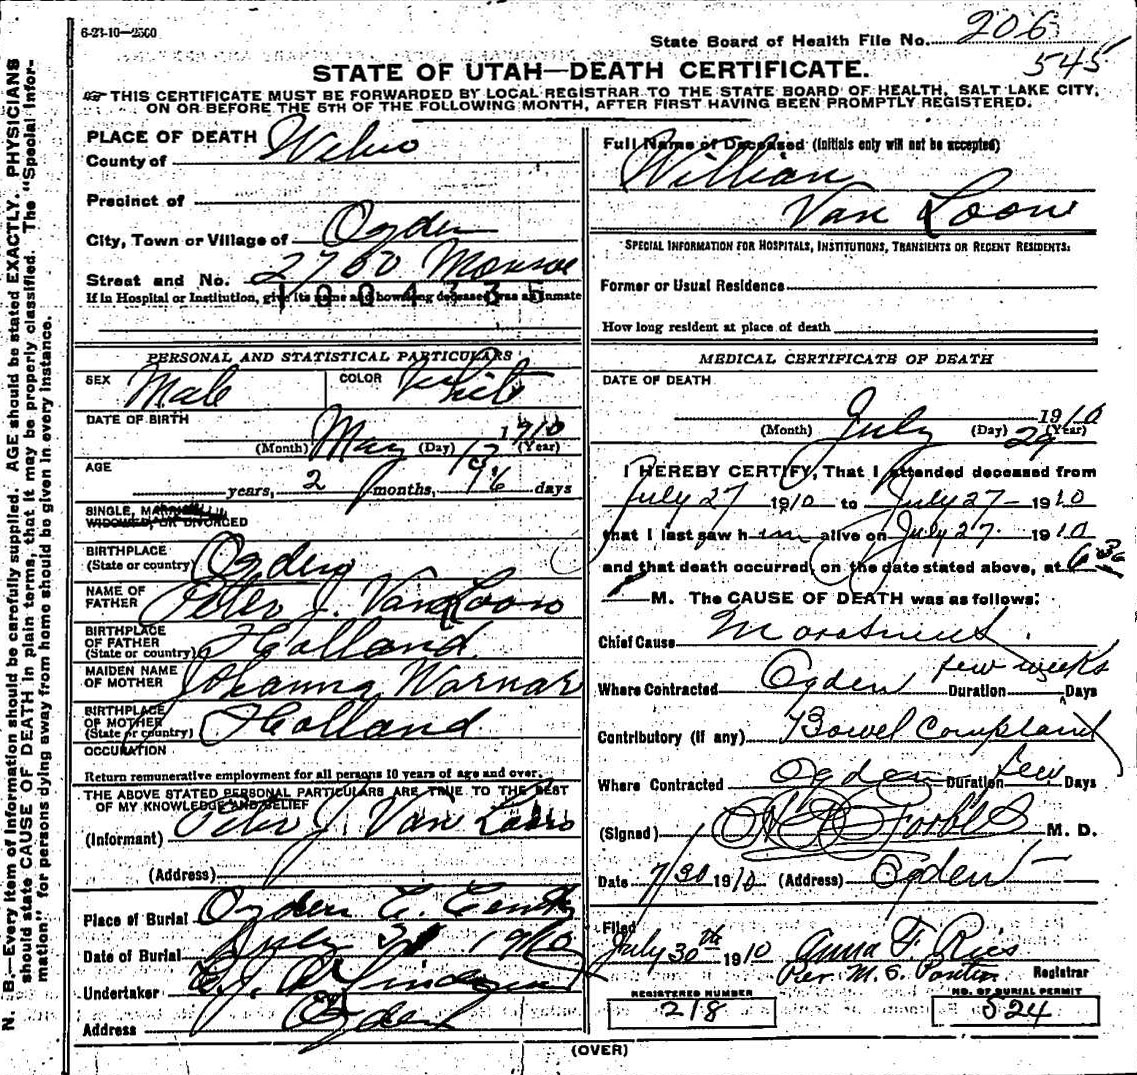 6-23-10—2500
State Board of Health File No. 206
545
STATE OF UTAH—DEATH CERTIFICATE.
THIS CERTIFICATE MUST BE FORWARDED BY LOCAL REGISTRAR TO THE STATE BOARD OF HEALTH, SALT LAKE CITY,
ON OR BEFORE THE 5TH OF THE FOLLOWING MONTH, AFTER FIRST HAVING BEEN PROMPTLY REGISTERED.
N. B.—Every item of information should be carefully supplied. AGE should be stated EXACTLY. PHYSICIANS
should state CAUSE OF DEATH in plain terms, that it may be properly classified. The "Special Infor-
mation" for persons dying away from home should be given in every instance.
PLACE OF DEATH
County of Weber
Precinct of
City, Town or Village of Ogden
Street and No. 2760 Monroe
If in Hospital or Institution, give its name and how long deceased was an inmate
1004335
PERSONAL AND STATISTICAL PARTICULARS
SEX Male COLOR White
DATE OF BIRTH
(Month) May (Day) 13 1910 (Year)
AGE
years, 2 months, 16 days
SINGLE, MARRIED
WIDOWED, OR DIVORCED
BIRTHPLACE
(State or country) Ogden
NAME OF
FATHER Peter J. Van Loon
BIRTHPLACE
OF FATHER
(State or country) Holland
MAIDEN NAME
OF MOTHER Johanna Warnar
BIRTHPLACE
OF MOTHER
(State or country) Holland
OCCUPATION
Return remunerative employment for all persons 10 years of age and over.
THE ABOVE STATED PERSONAL PARTICULARS ARE TRUE TO THE BEST
OF MY KNOWLEDGE AND BELIEF
(Informant) Peter J. Van Loon
(Address)
Place of Burial Ogden C.
Date of Burial July 31 1910
Undertaker
Address Ogden
Full Name of Deceased (Initials only will not be accepted)
William
Van Loon
SPECIAL INFORMATION FOR HOSPITALS, INSTITUTIONS, TRANSIENTS OR RECENT RESIDENTS:
Former or Usual Residence
How long resident at place of death
MEDICAL CERTIFICATE OF DEATH
DATE OF DEATH
(Month) July (Day) 29 1910 (Year)
I HEREBY CERTIFY, That I attended deceased from
July 27 1910 to July 27 - 1910
that I last saw him alive on July 27. 1910
and that death occurred, on the date stated above, at 6 30
M. The CAUSE OF DEATH was as follows:
Chief Cause
Where Contracted Ogden Duration few weeks Days
Contributory (if any) Bowel Complaint
Where Contracted Ogden Duration few Days
(Signed) M. D.
Date 7/30 1910 (Address) Ogden
Filed
July 30th 1910 Anna F. Ries
Per M. S. Registrar
REGISTERED NUMBER
218
NO. OF BURIAL PERMIT
524
(OVER)